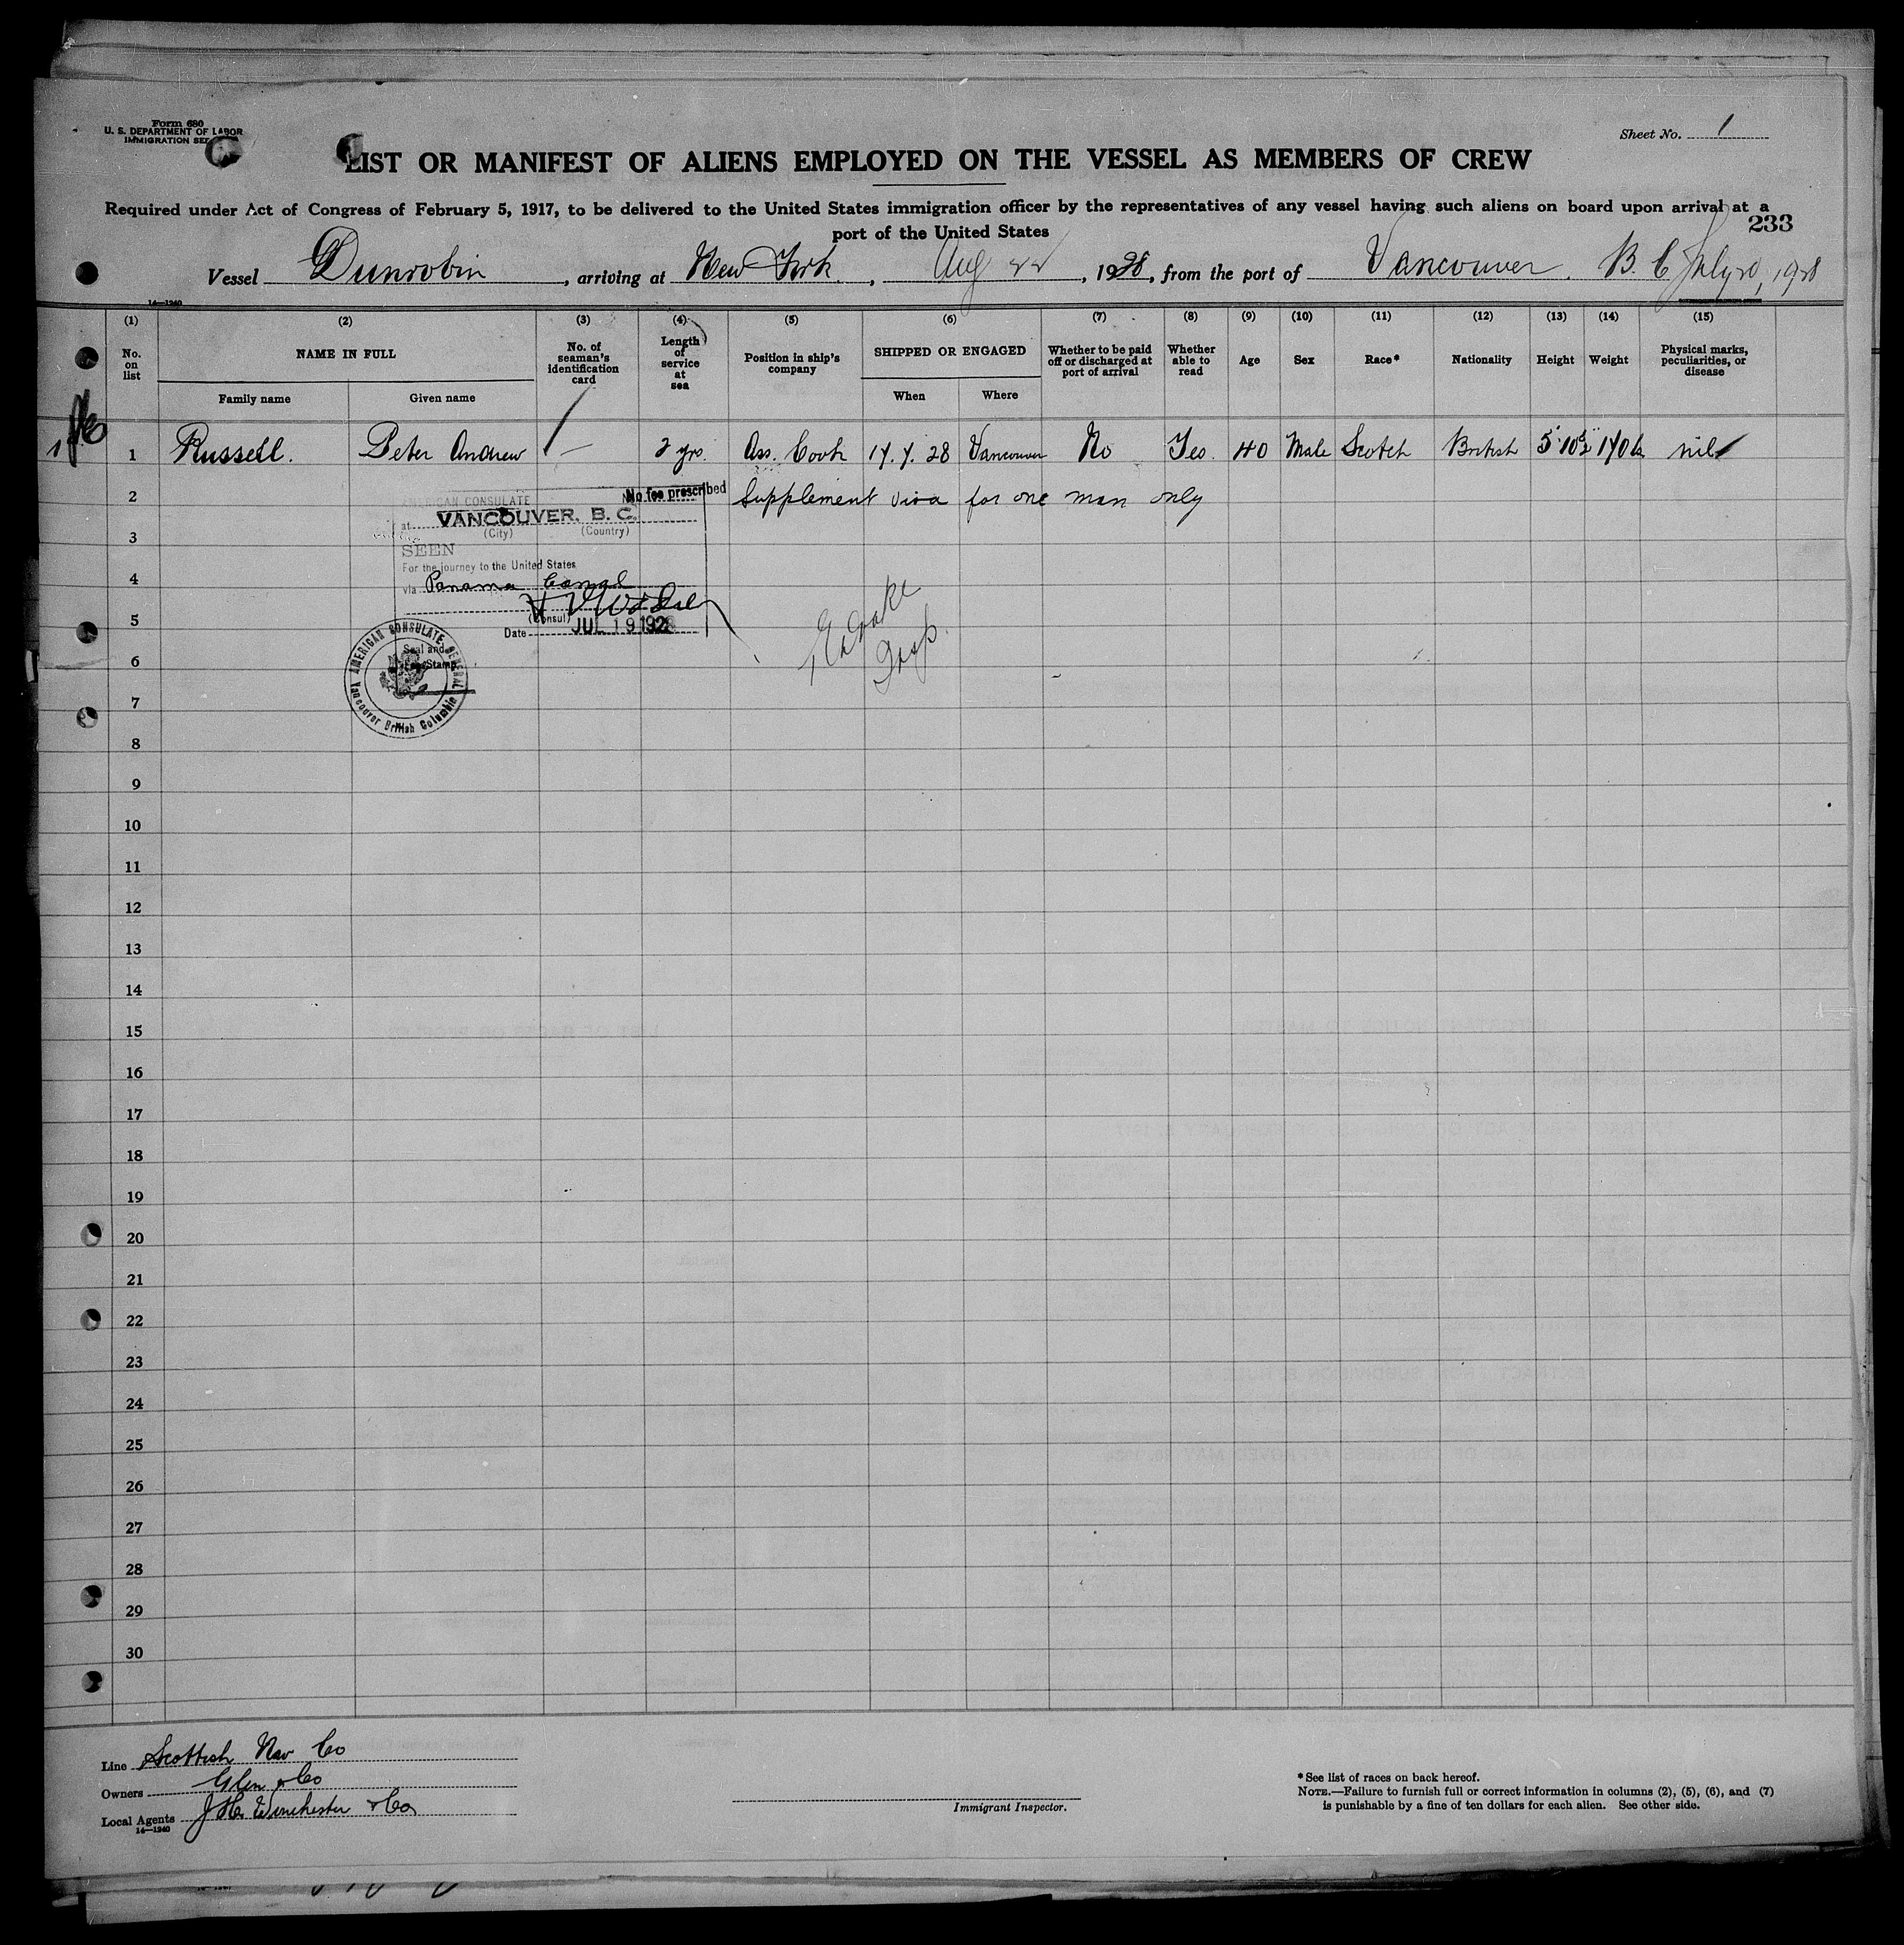 Form 680
U. S. DEPARTMENT OF LABOR
IMMIGRATION
Sheet No. 1
LIST OR MANIFEST OF ALIENS EMPLOYED ON THE VESSEL AS MEMBERS OF CREW
Required under Act of Congress of February 5, 1917, to be delivered to the United States immigration officer by the representatives of any vessel having such aliens on board upon arrival at a
port of the United States
233
Vessel Dunrobin, arriving at New York, Aug 22, 1928, from the port of Vancouver. B. C. July 20, 1928
14—1240
(1) (2) (3) (4) (5) (6) (7) (8) (9) (10) (11) (12) (13) (14) (15)
No. on list NAME IN FULL No. of seaman's identification card Length of service at sea Position in ship's company SHIPPED OR ENGAGED Whether to be paid off or discharged at port of arrival Whether able to read Age Sex Race* Nationality Height Weight Physical marks, peculiarities, or disease
Family name Given name When Where
1 Russell. Peter Andrew — 2 yrs. Ass. Cook 17. 7. 28 Vancouver No Yes. 40 Male Scotch British 5' 10½" 170 lb nil
2 No fee prescribed Supplement visa for one man only
AMERICAN CONSULATE
at VANCOUVER, B. C.
(City) (Country)
3
SEEN
For the journey to the United States
4
via Panama Canal
(Consul)
5
Date JUL 19 1928
Seal and
Fee Stamp
AMERICAN CONSULATE GENERAL
Vancouver British Columbia
6
7
8
9
10
11
12
13
14
15
16
17
18
19
20
21
22
23
24
25
26
27
28
29
30
Line Scottish Nav Co
Owners Glen & Co
Local Agents J. H. Winchester & Co
14—1240
Immigrant Inspector.
*See list of races on back hereof.
NOTE.—Failure to furnish full or correct information in columns (2), (5), (6), and (7)
is punishable by a fine of ten dollars for each alien. See other side.